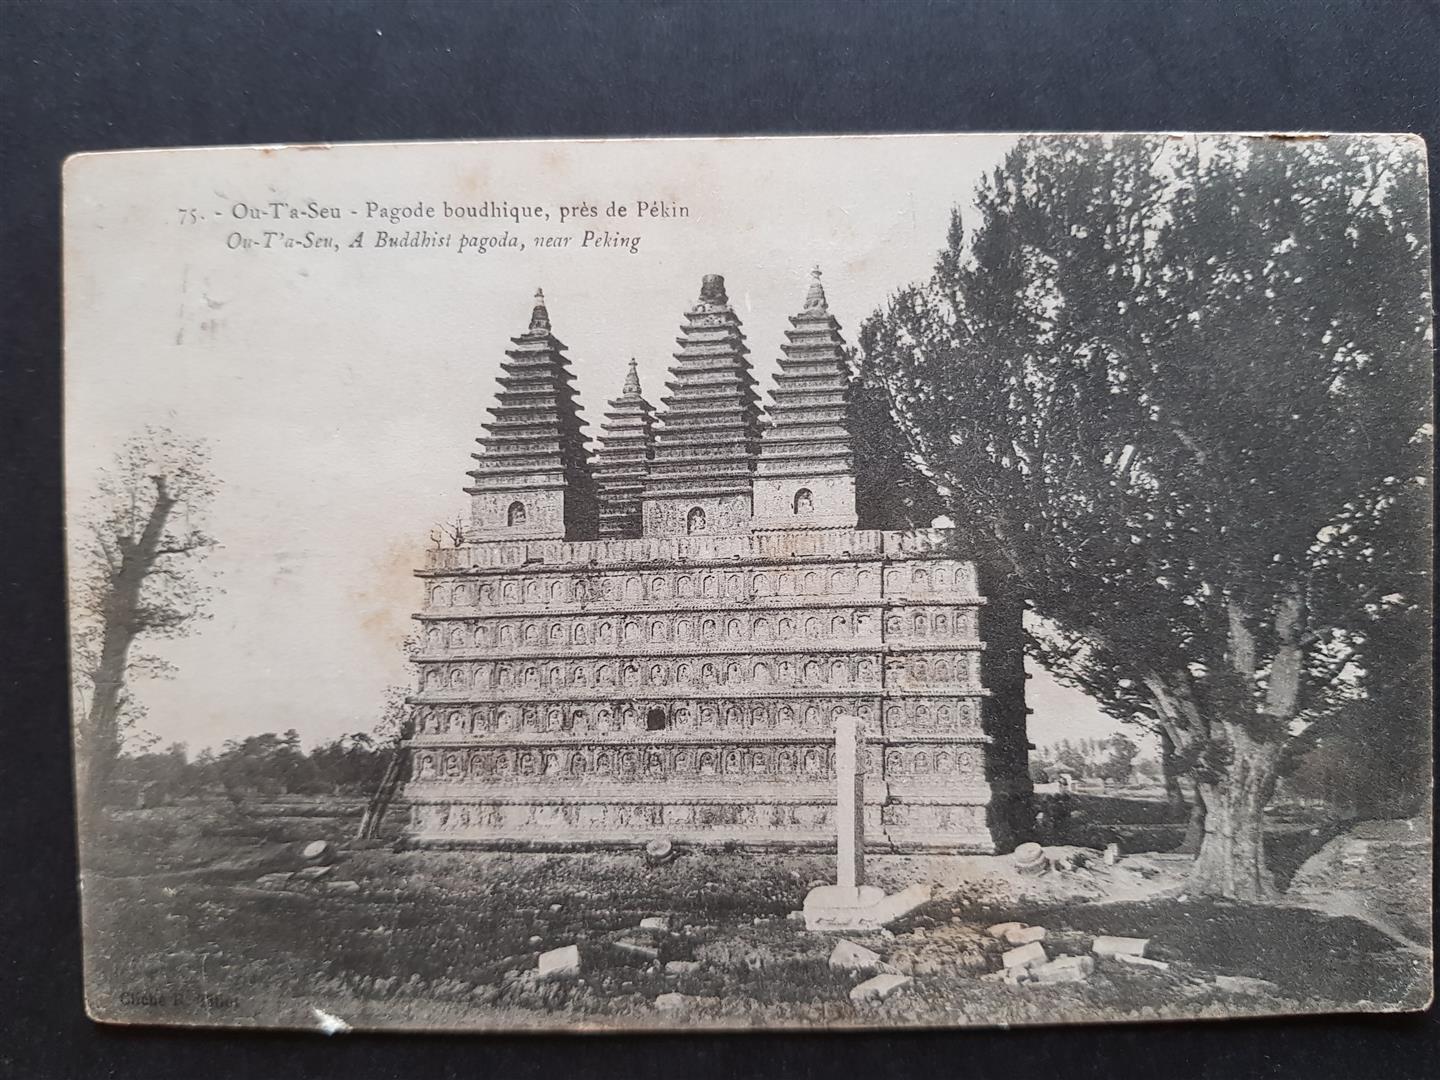 75. - Ou-T'a-Seu - Pagode boudhique, près de Pékin
Ou-T'a-Seu, A Buddhist pagoda, near Peking
Cliché R.